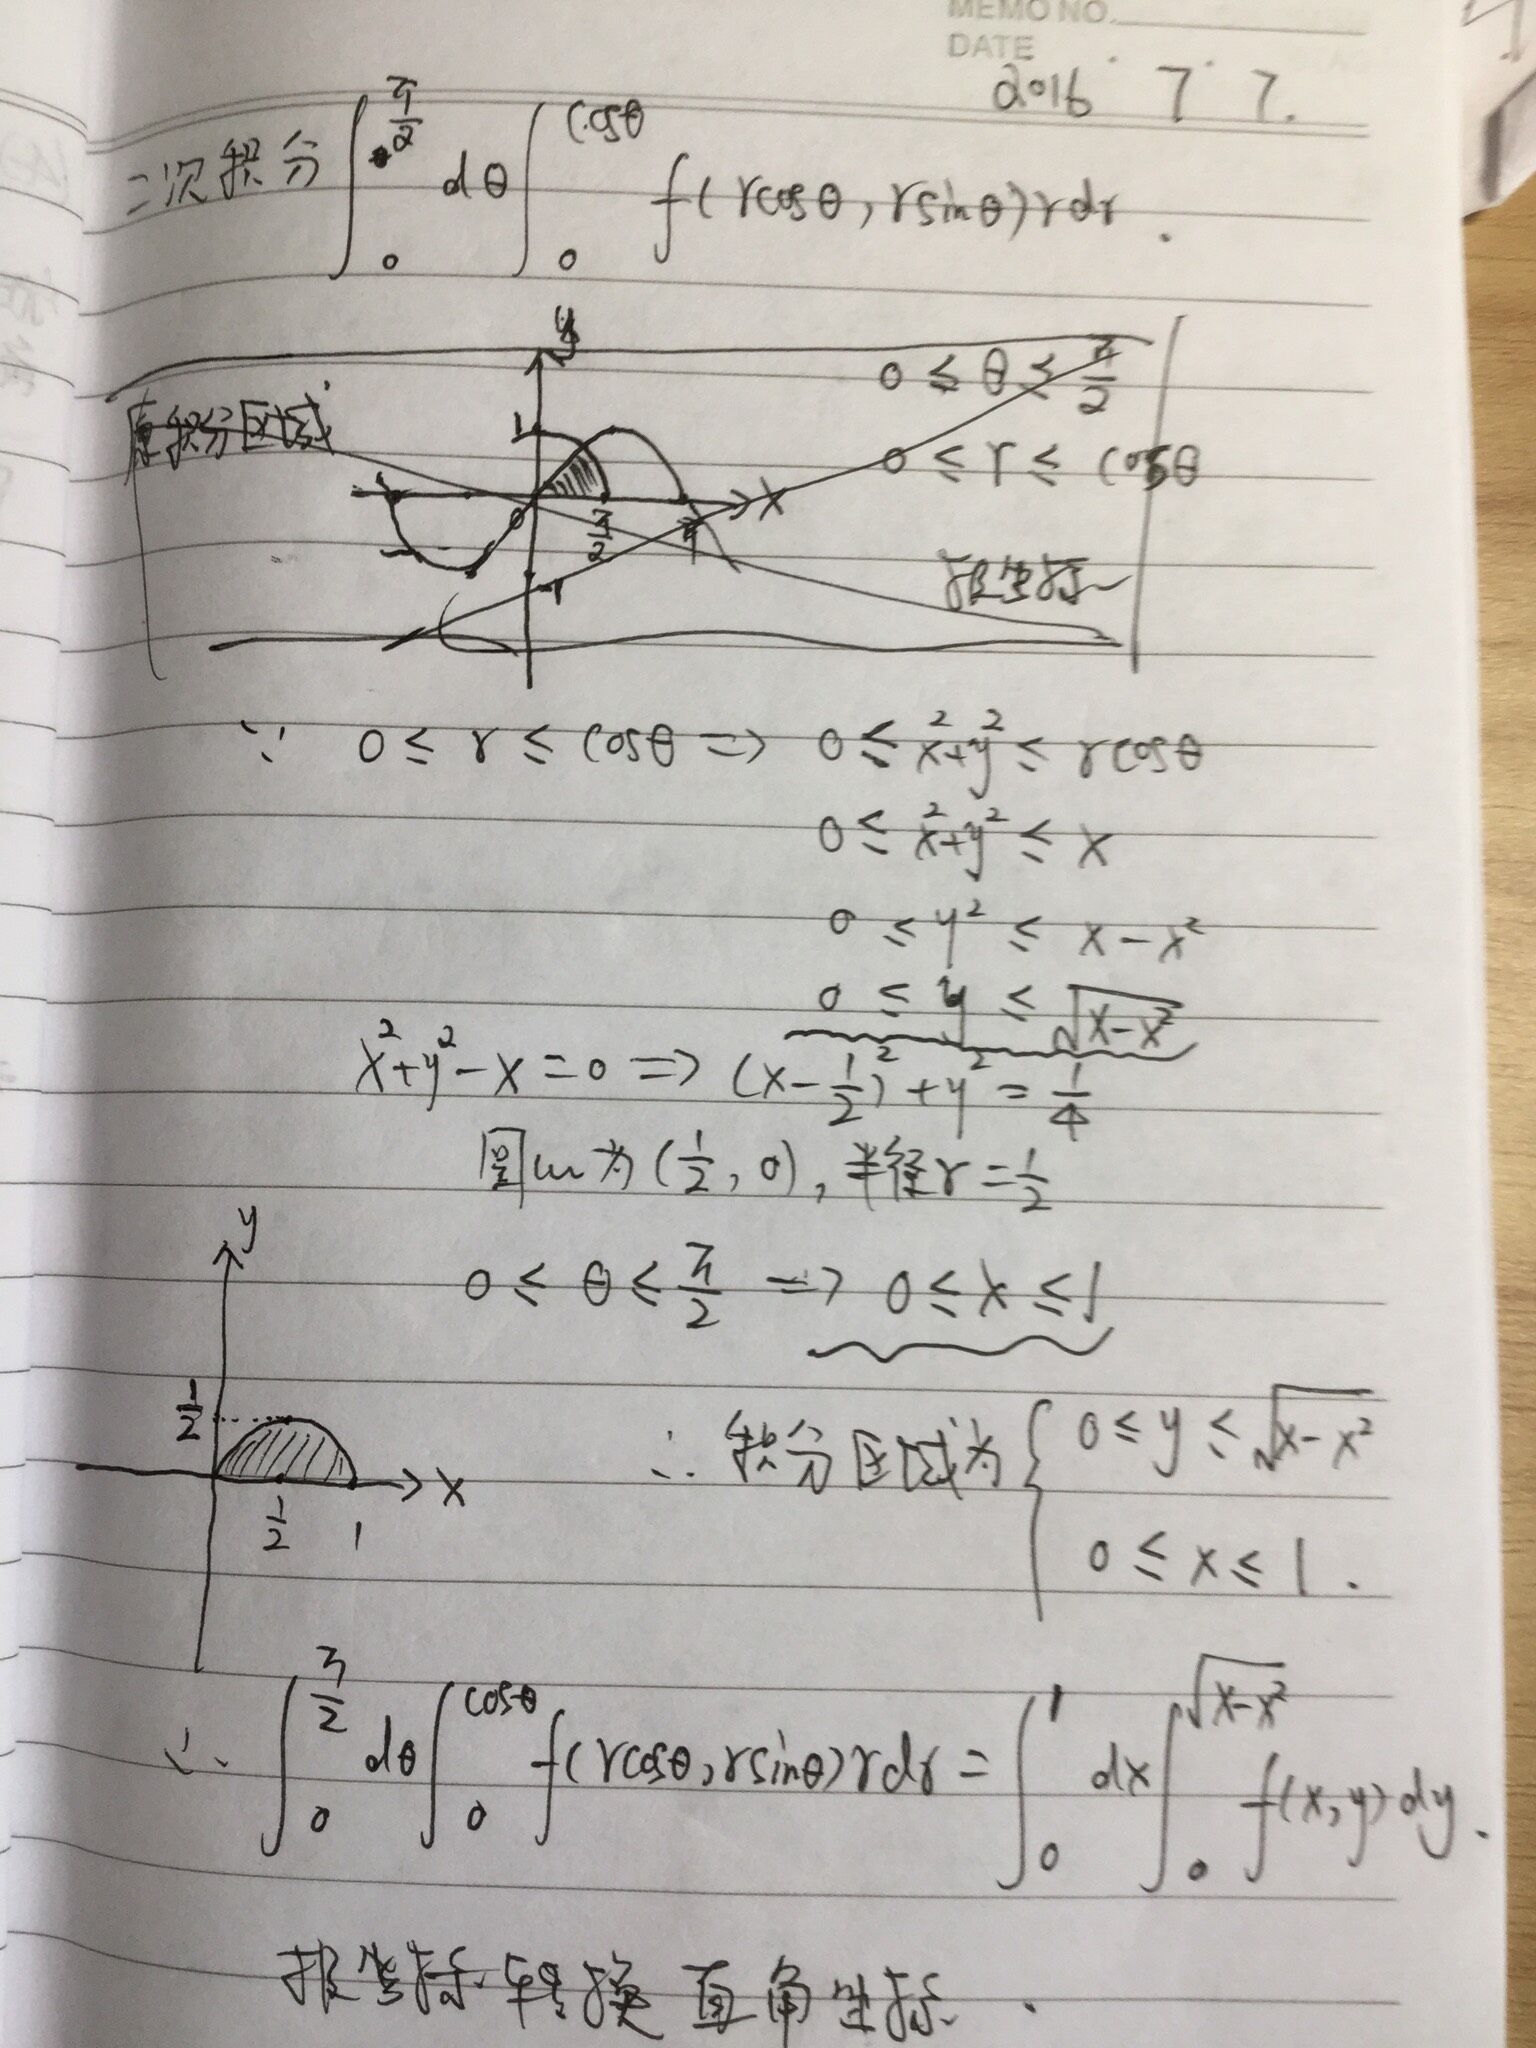 MEMO NO.
DATE
2016 7 7.
二次积分 ∫_0^{π/2} dθ ∫_0^{cosθ} f(rcosθ, rsinθ)rdr.
y
0 ≤ θ ≤ π/2
原积分区域
1
0 ≤ r ≤ cosθ
x
0
π/2
π
-1
极坐标
∵ 0 ≤ r ≤ cosθ => 0 ≤ x²+y² ≤ rcosθ
0 ≤ x²+y² ≤ x
0 ≤ y² ≤ x-x²
0 ≤ y ≤ √(x-x²)
x²+y²-x=0 => (x-1/2)²+y²=1/4
圆心为(1/2, 0), 半径r=1/2
y
0 ≤ θ ≤ π/2 => 0 ≤ x ≤ 1
1/2
x
1/2 1
∴ 积分区域为 { 0 ≤ y ≤ √(x-x²)
0 ≤ x ≤ 1.
∴ ∫_0^{π/2} dθ ∫_0^{cosθ} f(rcosθ, rsinθ)rdr = ∫_0^1 dx ∫_0^{√(x-x²)} f(x,y)dy.
极坐标转换直角坐标.